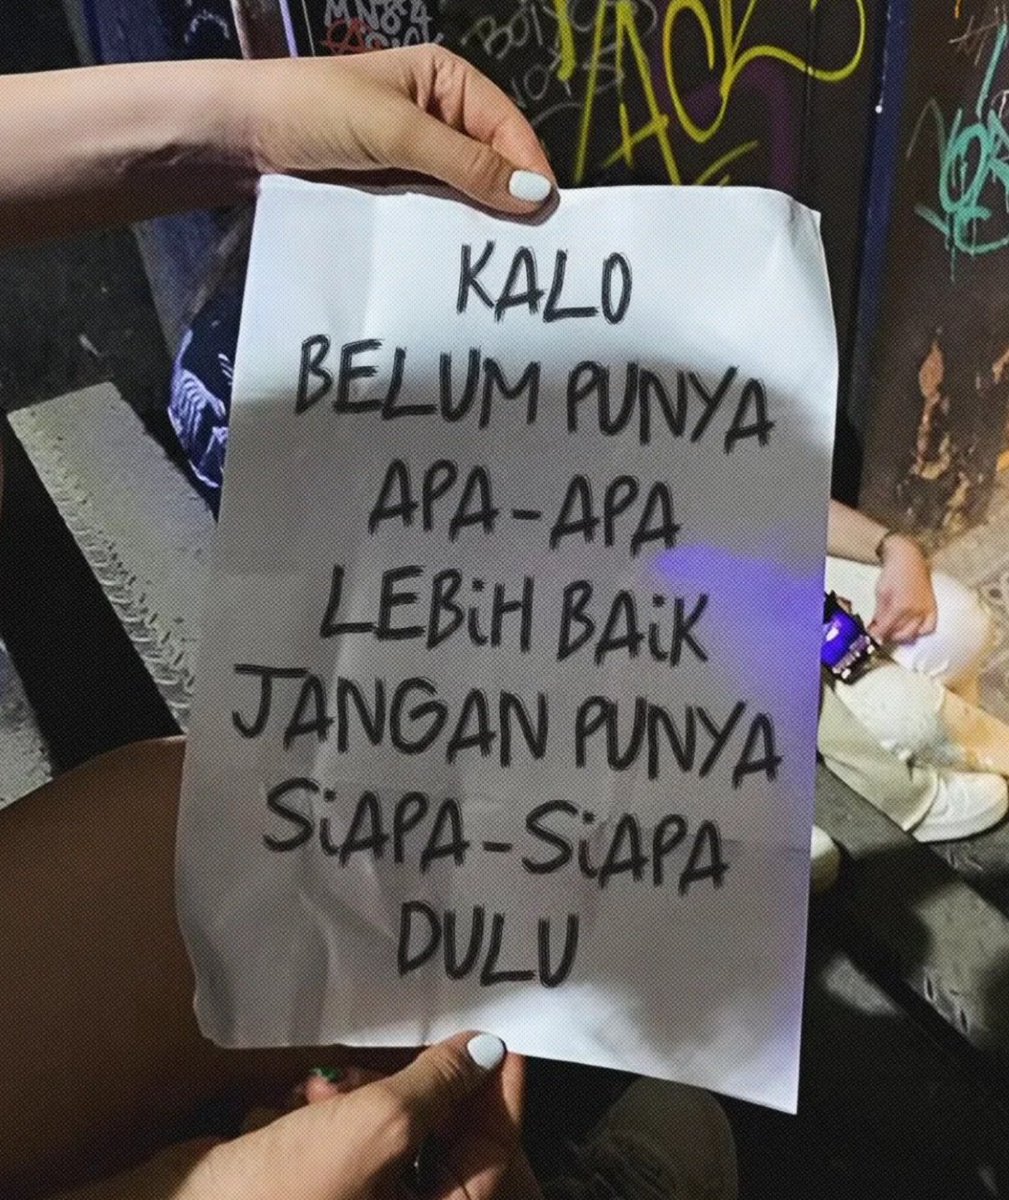 KALO
BELUM PUNYA
APA-APA
LEBiH BAiK
JANGAN PUNYA
SiAPA-SiAPA
DULU